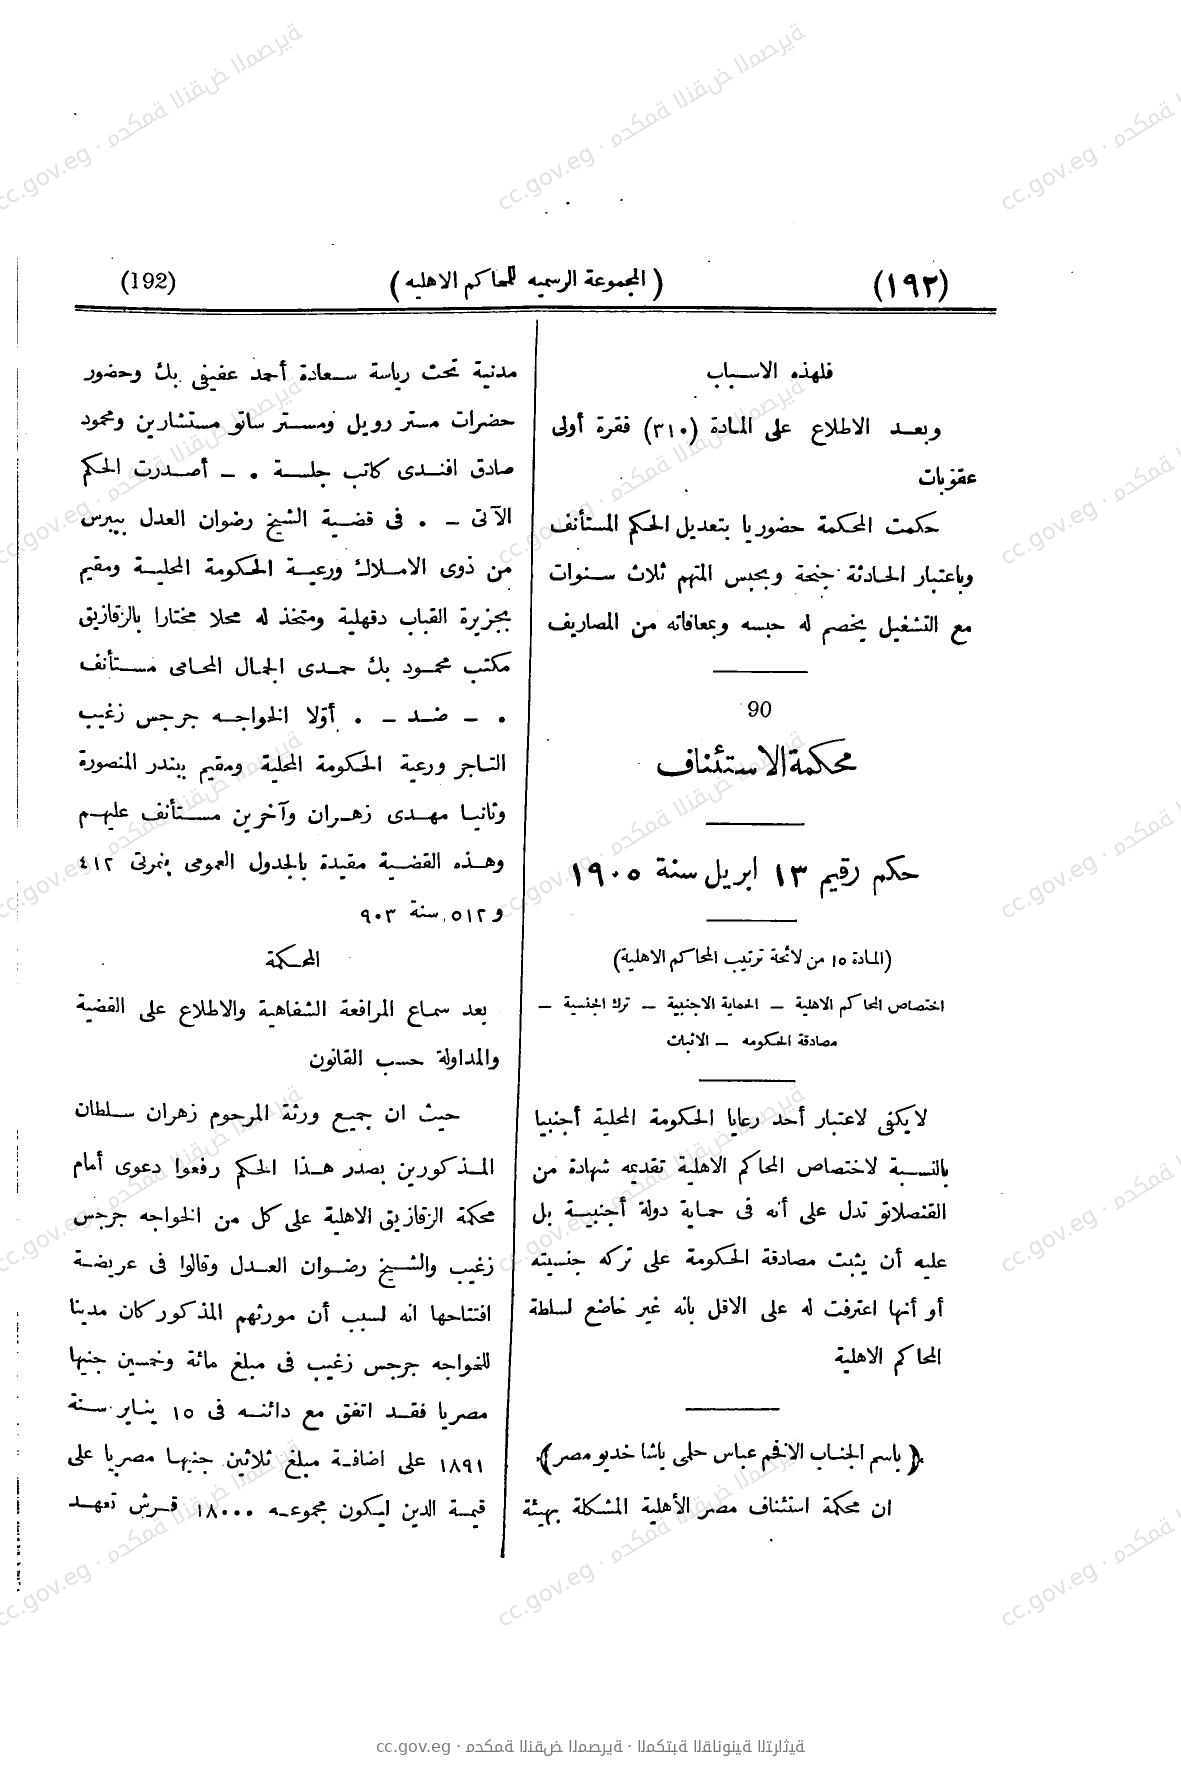 (١٩٢)
(المجموعة الرسميه للمحاكم الاهليه)
(192)
فلهذه الاسباب
وبعد الاطلاع على المادة (٣١٠) فقرة أولى
عقوبات
حكمت المحكمة حضوريا بتعديل الحكم المستأنف
وباعتبار الحادثة جنحة وبحبس المتهم ثلاث سنوات
مع التشغيل يخصم له حبسه وبمعافاته من المصاريف
90
محكمة الاستئناف
حكم رقيم ١٣ ابريل سنة ١٩٠٥
(المادة ١٥ من لائحة ترتيب المحاكم الاهلية)
اختصاص المحاكم الاهلية — الحماية الاجنبية — ترك الجنسية —
مصادقة الحكومه — الاثبات
لا يكفي لاعتبار أحد رعايا الحكومة المحلية أجنبيا
بالنسبة لاختصاص المحاكم الاهلية تقديمه شهادة من
القنصلاتو تدل على أنه فى حماية دولة أجنبية بل
عليه أن يثبت مصادقة الحكومة على تركه جنسيته
أو أنها اعترفت له على الاقل بانه غير خاضع لسلطة
المحاكم الاهلية
(باسم الجناب الافخم عباس حلمى باشا خديو مصر)
ان محكمة استئناف مصر الأهلية المشكلة بهيئة
مدنية تحت رياسة سعادة أحمد عفيفى بك وحضور
حضرات مستر رويل ومستر ساتو مستشارين ومحمود
صادق افندى كاتب جلسة ٠ — أصدرت الحكم
الآتى — ٠ فى قضية الشيخ رضوان العدل بيبرس
من ذوى الاملاك ورعية الحكومة المحلية ومقيم
بجزيرة القباب دقهلية ومتخذ له محلا مختارا بالزقازيق
مكتب محمود بك حمدى الجمال المحامى مستأنف
٠ — ضد — ٠ أوّلا الخواجه جرجس زغيب
التاجر ورعية الحكومة المحلية ومقيم ببندر المنصورة
وثانيا مهدى زهران وآخرين مستأنف عليهم
وهذه القضية مقيدة بالجدول العمومى بنمرتى ٤١٢
و ٥١٢ سنة ٩٠٣
المحكمة
بعد سماع المرافعة الشفاهية والاطلاع على القضية
والمداولة حسب القانون
حيث ان جميع ورثة المرحوم زهران سلطان
المذكورين بصدر هذا الحكم رفعوا دعوى أمام
محكمة الزقازيق الاهلية على كل من الخواجه جرجس
زغيب والشيخ رضوان العدل وقالوا فى عريضة
افتتاحها انه لسبب أن مورثهم المذكور كان مدينا
للخواجه جرجس زغيب فى مبلغ مائة وخمسين جنيها
مصريا فقد اتفق مع دائنه فى ١٥ يناير سنة
١٨٩١ على اضافة مبلغ ثلاثين جنيها مصريا على
قيمة الدين ليكون مجموعه ١٨٠٠٠ قرش تعهد
cc.gov.eg · محكمة النقض المصرية · المكتبة القانونية التراثية